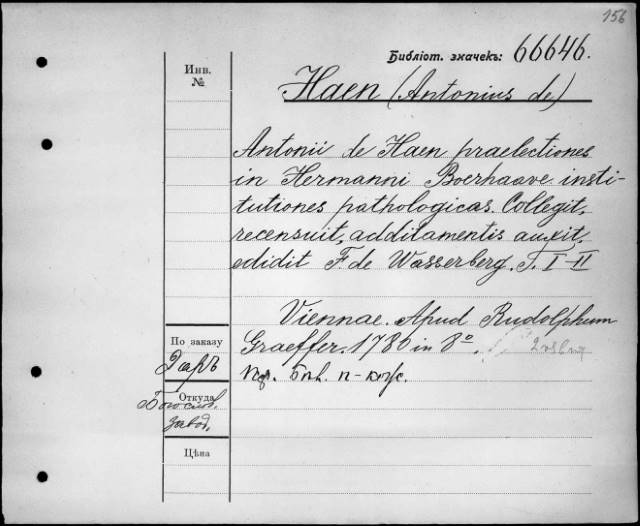 156
Библіот. значекъ: 66646.
Инв.
№
Haen (Antonius de)
Antonii de Haen praelectiones
in Hermanni Boerhaave insti-
tutiones pathologicas. Collegit,
recensuit, additamentis auxit,
edidit F. de Wasserberg. T. I-II
Viennae. Apud Rudolphum
По заказу
Graeffer. 1780 in 8º.
Даръ
Откуда
Богослов.
завод.
Цѣна